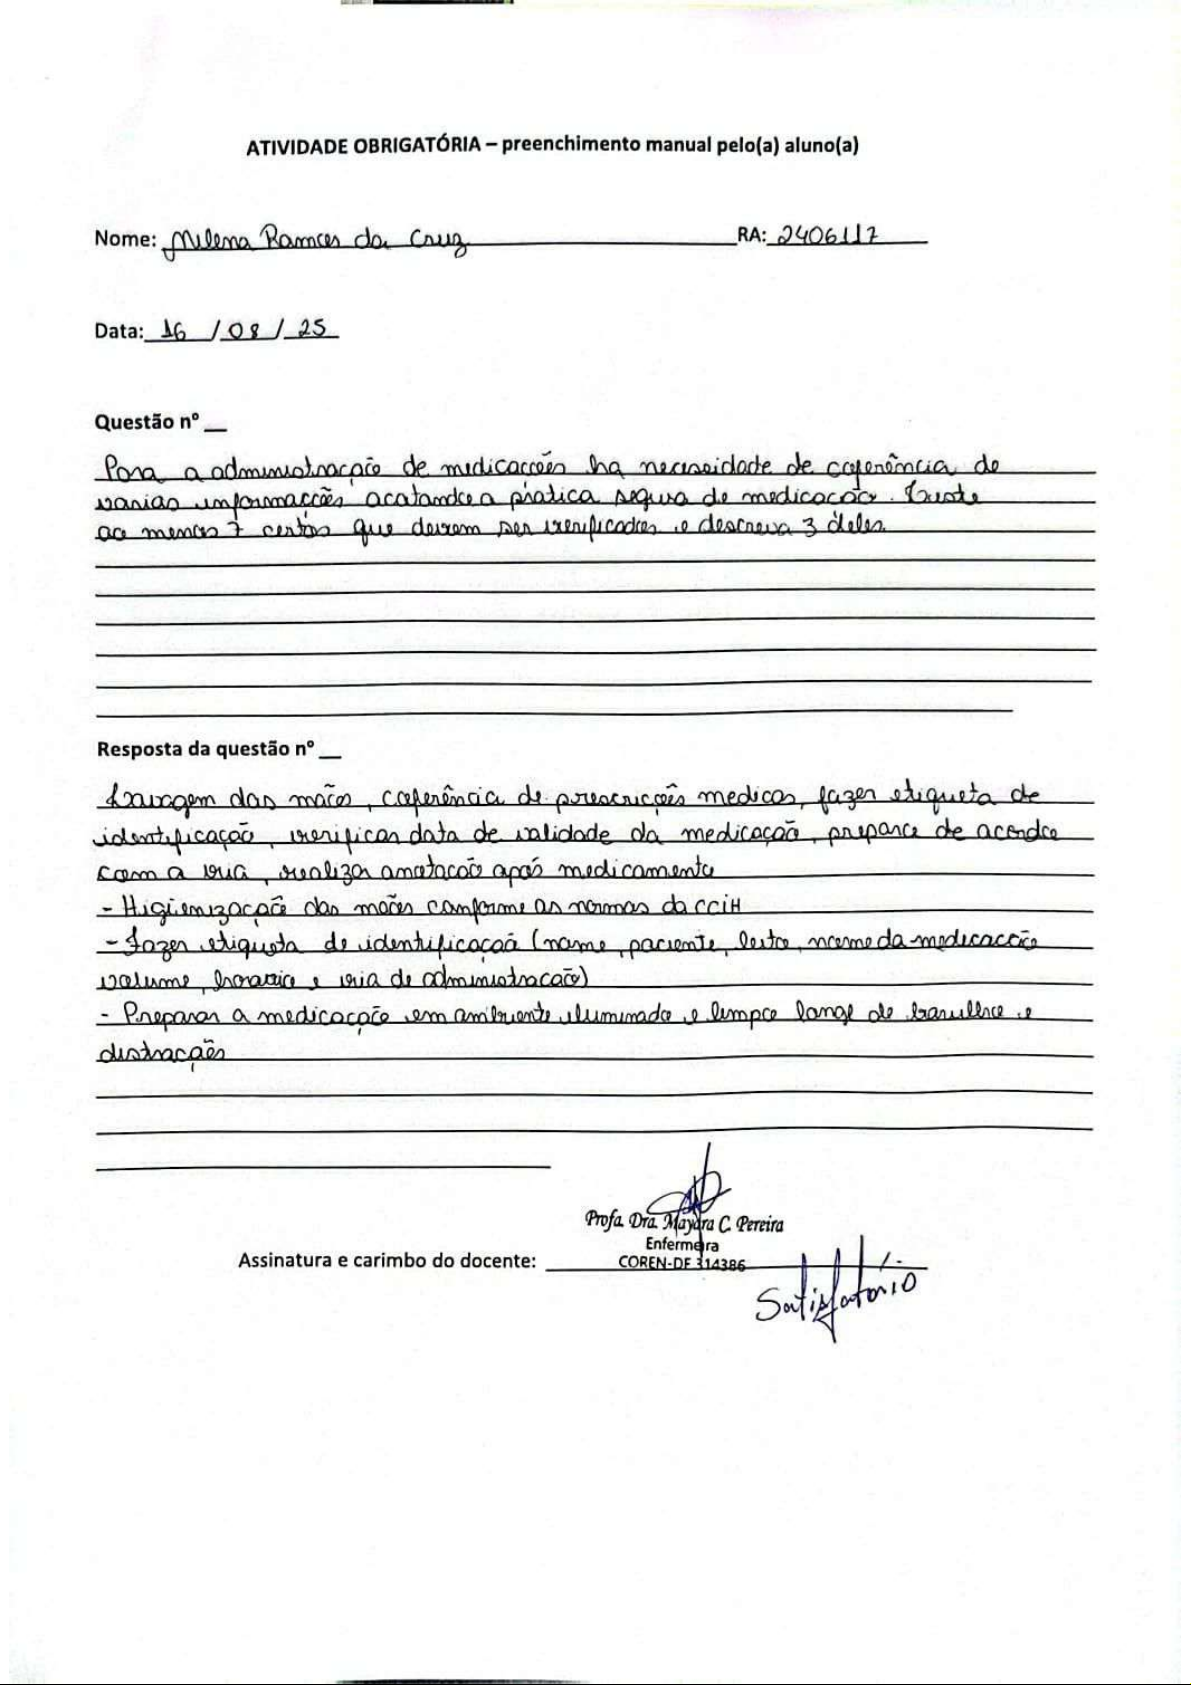 ATIVIDADE OBRIGATÓRIA – preenchimento manual pelo(a) aluno(a)
Nome: Milena Ramos da Cruz RA: 2406117
Data: 16 / 08 / 25
Questão nº __
Para a administração de medicações ha necessidade de coferência de
varias informações acatando a prática segura de medicação. Liste
ao menos 7 certos que devem ser verificados e descreva 3 deles.
Resposta da questão nº __
Lavagem das mãos, coferência de prescrições medicas, fazer etiqueta de
identificação, verificar data de validade da medicação, preparo de acordo
com a via, realizar anotação após medicamento
- Higienização das mãos conforme as normas da CCIH
- Fazer etiqueta de identificação (nome, paciente, leito, nome da medicação
volume, horario e via de administração)
- Preparar a medicação em ambiente iluminado e limpo longe de barulho e
distrações
Profa. Dra. Mayara C. Pereira
Enfermeira
Assinatura e carimbo do docente: COREN-DF 314386
Satisfatório